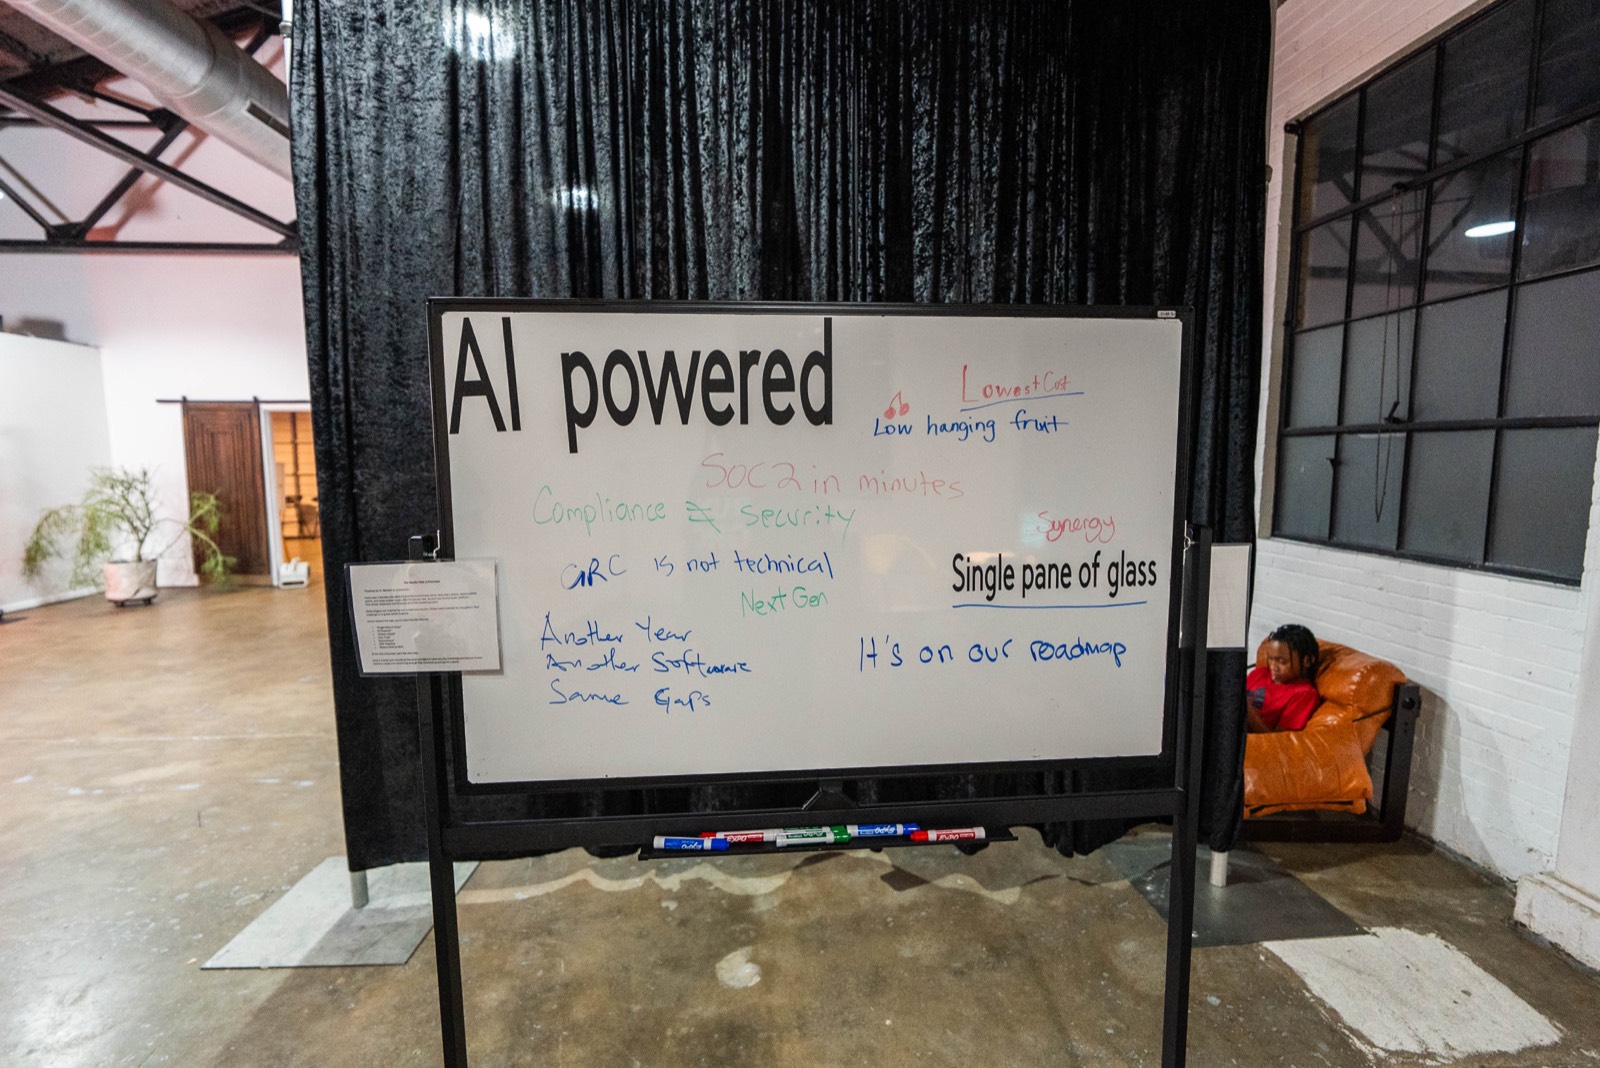 AI powered
Lowest Cost
Low hanging fruit
SOC2 in minutes
Compliance ≠ security
Synergy
GRC is not technical
Single pane of glass
Next Gen
Another Year
Another Software
Same Gaps
It's on our roadmap
EXPO
EXPO
EXPO
EXPO